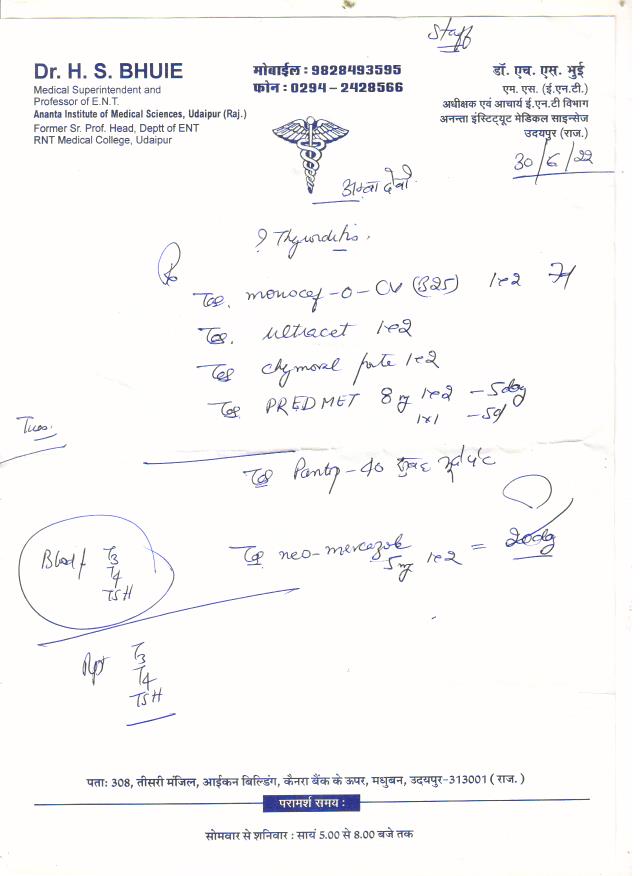 Staff
Dr. H. S. BHUIE
Medical Superintendent and
Professor of E.N.T.
Ananta Institute of Medical Sciences, Udaipur (Raj.)
Former Sr. Prof. Head, Deptt of ENT
RNT Medical College, Udaipur
मोबाईल : 9828493595
फोन : 0294 - 2428566
डॉ. एच. एस. भुई
एम. एस. (ई.एन.टी.)
अधीक्षक एवं आचार्य ई.एन.टी विभाग
अनन्ता इंस्टिट्यूट मेडिकल साइन्सेज
उदयपुर (राज.)
30/6/22
अम्बा देवी
? Thyroiditis.
Rx
Tab. monocef-O-CV (325) 1x2
Tab. ultracet 1x2
Tab chymoral forte 1x2
Tab. PREDMET 8mg 1x2 - 5day
1x1 - 5d
Tues.
Tab Pantop-40
Blood f T3
T4
TSH
Tab neo-mercazole
5mg 1x2 = 20day
Rpt T3
T4
TSH
पताः 308, तीसरी मंजिल, आईकन बिल्डिंग, कैनरा बैंक के ऊपर, मधुबन, उदयपुर-313001 ( राज. )
परामर्श समय :
सोमवार से शनिवार : सायं 5.00 से 8.00 बजे तक